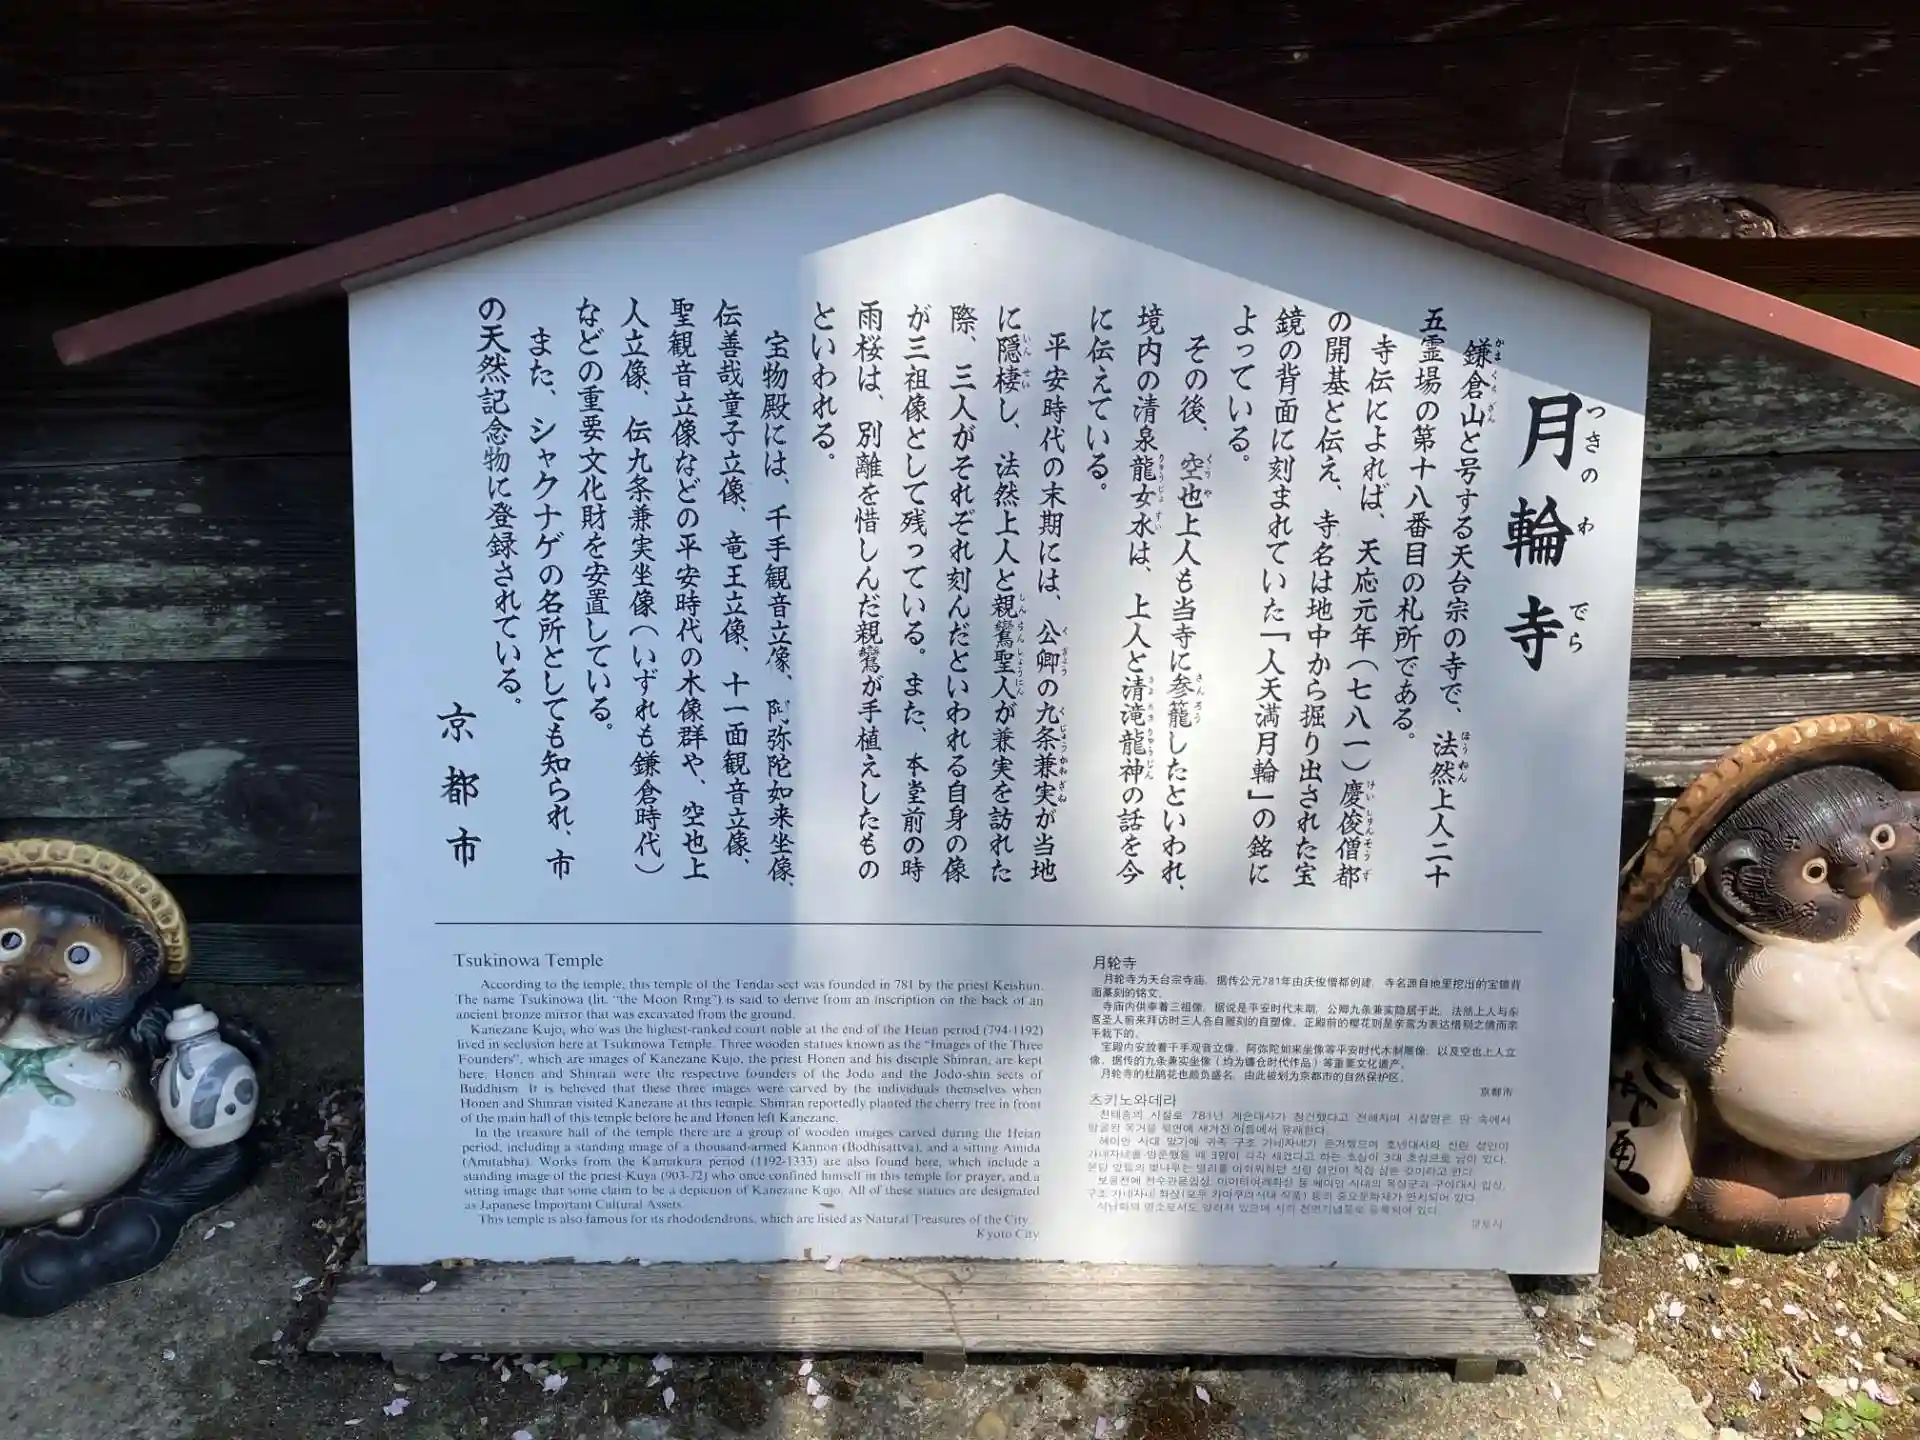 月輪寺
つきのわでら
鎌倉山と号する天台宗の寺で、法然上人二十
五霊場の第十八番目の札所である。
寺伝によれば、天応元年(七八一)慶俊僧都
の開基と伝え、寺名は地中から掘り出された宝
鏡の背面に刻まれていた「人天満月輪」の銘に
よっている。
その後、空也上人も当寺に参籠したといわれ、
境内の清泉龍女水は、上人と清滝龍神の話を今
に伝えている。
平安時代の末期には、公卿の九条兼実が当地
に隠棲し、法然上人と親鸞聖人が兼実を訪れた
際、三人がそれぞれ刻んだといわれる自身の像
が三祖像として残っている。また、本堂前の時
雨桜は、別離を惜しんだ親鸞が手植えしたもの
といわれる。
宝物殿には、千手観音立像、阿弥陀如来坐像、
伝善哉童子立像、竜王立像、十一面観音立像、
聖観音立像などの平安時代の木像群や、空也上
人立像、伝九条兼実坐像(いずれも鎌倉時代)
などの重要文化財を安置している。
また、シャクナゲの名所としても知られ、市
の天然記念物に登録されている。
京都市
Tsukinowa Temple
According to the temple, this temple of the Tendai sect was founded in 781 by the priest Keishun.
The name Tsukinowa (lit. "the Moon Ring") is said to derive from an inscription on the back of an
ancient bronze mirror that was excavated from the ground.
Kanezane Kujo, who was the highest-ranked court noble at the end of the Heian period (794-1192)
lived in seclusion here at Tsukinowa Temple. Three wooden statues known as the "Images of the Three
Founders", which are images of Kanezane Kujo, the priest Honen and his disciple Shinran, are kept
here. Honen and Shinran were the respective founders of the Jodo and the Jodo-shin sects of
Buddhism. It is believed that these three images were carved by the individuals themselves when
Honen and Shinran visited Kanezane at this temple. Shinran reportedly planted the cherry tree in front
of the main hall of this temple before he and Honen left Kanezane.
In the treasure hall of the temple there are a group of wooden images carved during the Heian
period, including a standing image of a thousand-armed Kannon (Bodhisattva), and a sitting Amida
(Amitabha). Works from the Kamakura period (1192-1333) are also found here, which include a
standing image of the priest Kuya (903-72) who once confined himself in this temple for prayer, and a
sitting image that some claim to be a depiction of Kanezane Kujo. All of these statues are designated
as Japanese Important Cultural Assets.
This temple is also famous for its rhododendrons, which are listed as Natural Treasures of the City.
Kyoto City
月轮寺
月轮寺为天台宗寺庙。据传公元781年由庆俊僧都创建。寺名源自地里挖出的宝镜背
面篆刻的铭文。
寺庙内供奉着三祖像。据说是平安时代末期，公卿九条兼实隐居于此，法然上人与亲
鸾圣人前来拜访时三人各自雕刻的自塑像。正殿前的樱花则是亲鸾为表达惜别之情而亲
手栽下的。
宝殿内安放着千手观音立像、阿弥陀如来坐像等平安时代木制雕像，以及空也上人立
像、据传的九条兼实坐像（均为镰仓时代作品）等重要文化遗产。
月轮寺的杜鹃花也颇负盛名，由此被划为京都市的自然保护区。
京都市
츠키노와데라
교토시